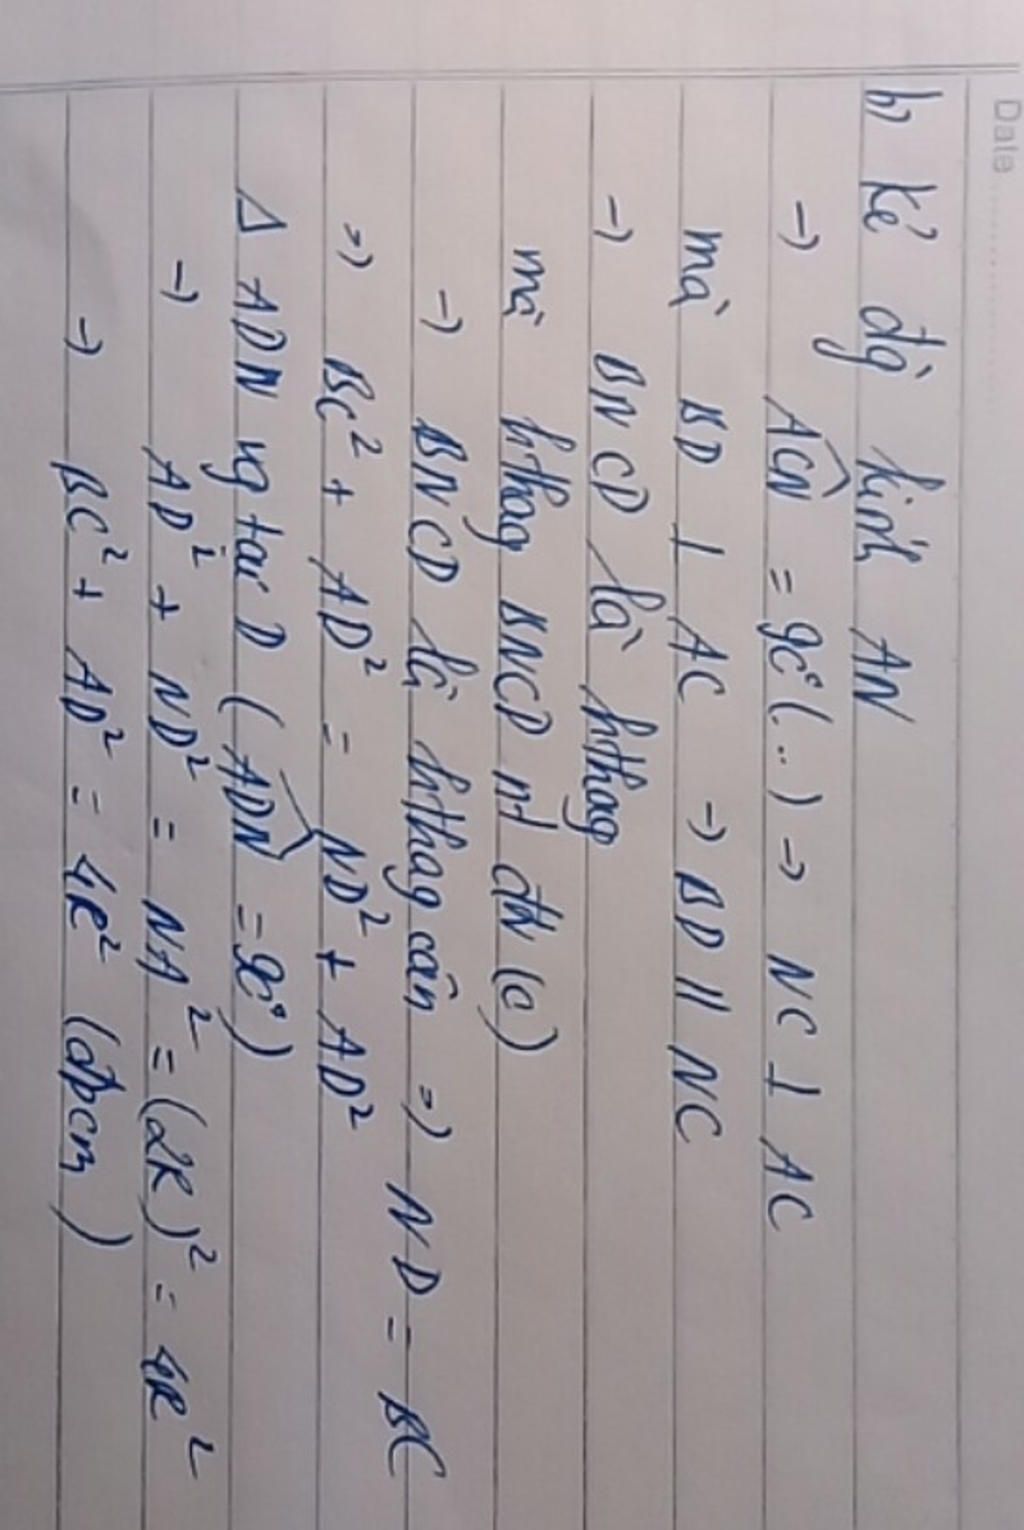 Date
b) Kẻ đg` kính AN
→ ACN = 90° (...) → NC ⊥ AC
mà BD ⊥ AC → BD // NC
→ BNCD là hthag
mà hthag BNCD nt đtr (O)
→ BNCD là hthag cân => ND = BC
=> BC² + AD² = ND² + AD²
Δ ADN vg tại D (ADN = 90°)
→ AD² + ND² = NA² = (2R)² = 4R²
→ BC² + AD² = 4R² (đpcm)